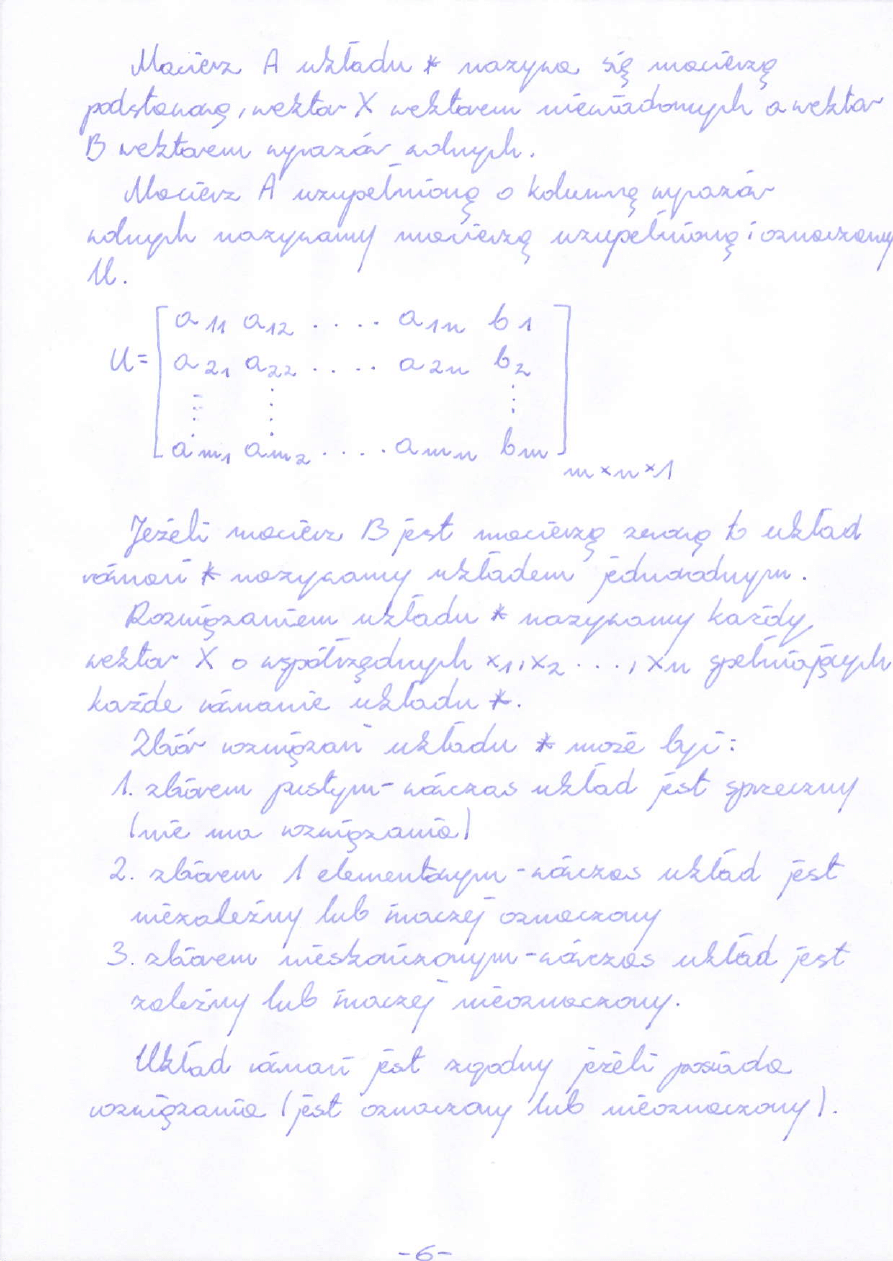 Macierz A układu * nazywa się macierzą
podstawową, wektor X wektorem niewiadomych a wektor
B wektorem wyrazów wolnych.
Macierz A uzupełnioną o kolumnę wyrazów
wolnych nazywamy macierzą uzupełnioną i oznaczamy
U.
U= [ a11 a12 .... a1n b1
a21 a22 .... a2n b2
⋮ ⋮ ⋮
am1 am2 .... amn bm ] m×n×1
Jeżeli macierz B jest macierzą zerową to układ
równań * nazywamy układem jednorodnym.
Rozwiązaniem układu * nazywamy każdy
wektor X o współrzędnych x1, x2 ..., xn spełniających
każde równanie układu *.
Zbiór rozwiązań układu * może być:
1. zbiorem pustym - wówczas układ jest sprzeczny
(nie ma rozwiązania)
2. zbiorem 1 elementowym - wówczas układ jest
niezależny lub inaczej oznaczony
3. zbiorem nieskończonym - wówczas układ jest
zależny lub inaczej nieoznaczony.
Układ równań jest zgodny jeżeli posiada
rozwiązania (jest oznaczony lub nieoznaczony).
-6-